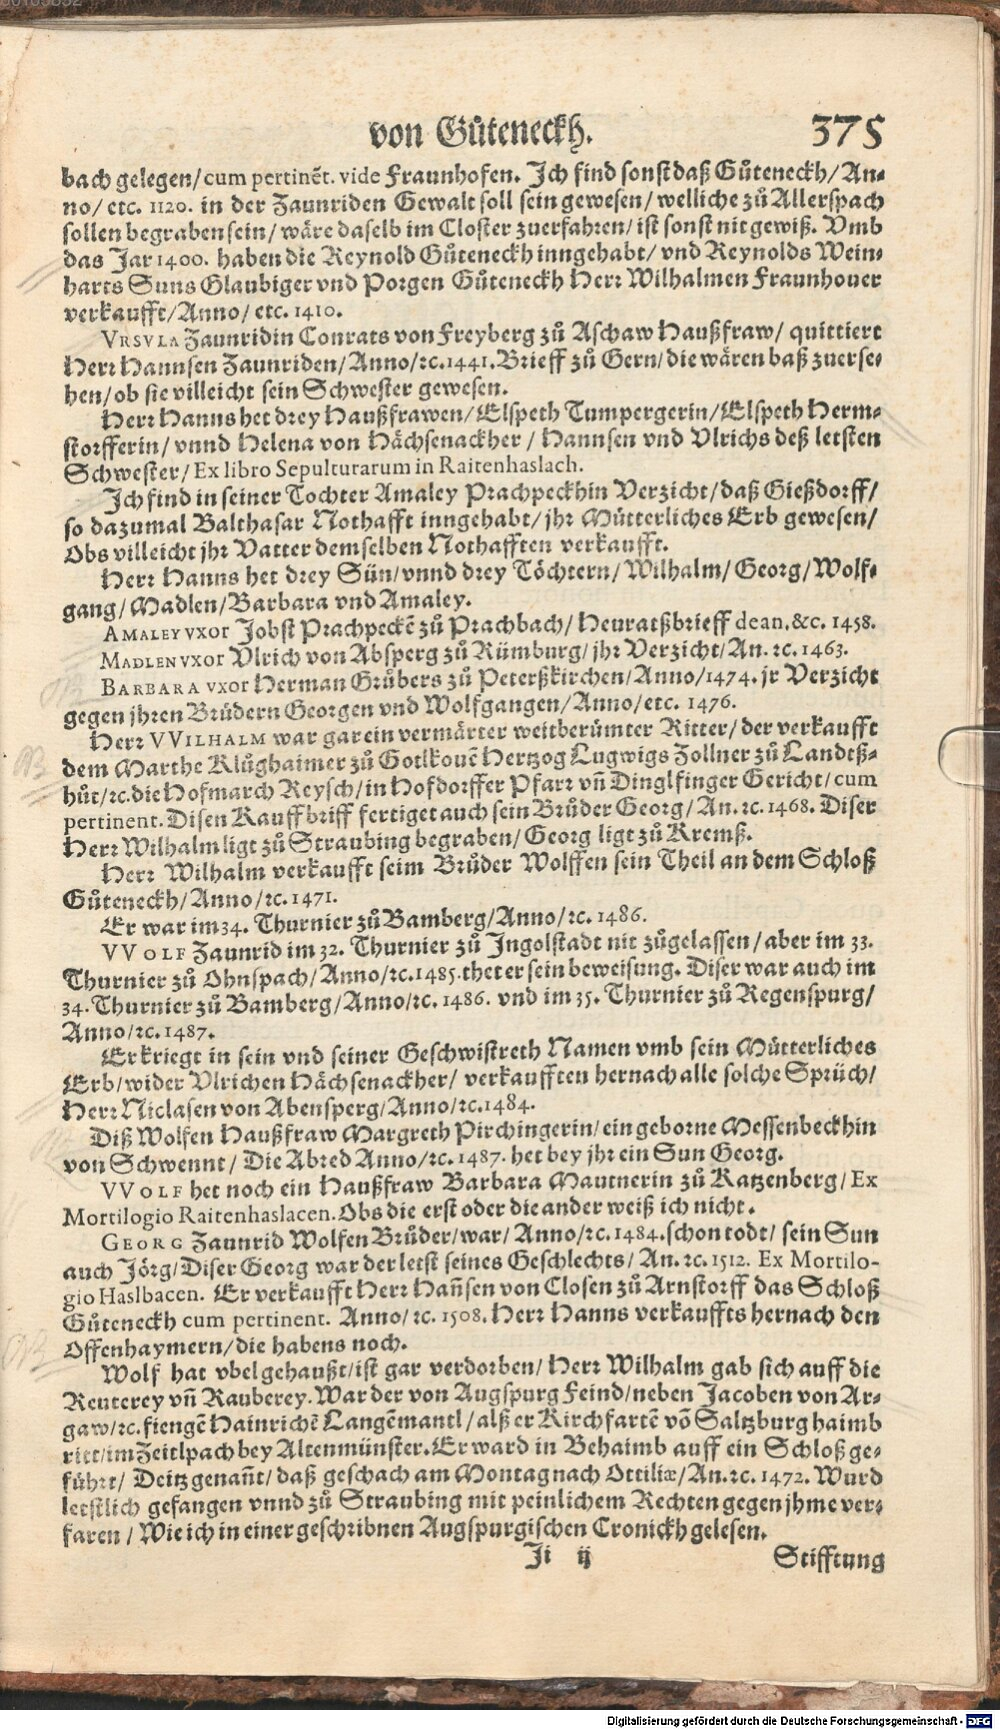 von Gůteneckh. 375
bach gelegen/cum pertinẽt. vide Fraunhofen. Ich find sonst daß Gůteneckh/An-
no/ etc. 1120. in der Zaunriden Gewalt soll sein gewesen/ welliche zů Allerspach
sollen begraben sein/ wäre daselb im Closter zuerfahren/ ist sonst nit gewiß. Vmb
das Jar 1400. haben die Reynold Gůteneckh inngehabt/ vnd Reynolds Wein-
harts Suns Glaubiger vnd Porgen Gůteneckh Herr Wilhalmen Fraunhouer
verkaufft/Anno/ etc. 1410.
VRSVLA Zaunridin Conrats von Freyberg zů Aschaw Haußfraw/ quittiert
Herr Hannsen Zaunriden/Anno/ꝛc.1441. Brieff zů Gern/ die wären baß zuerse-
hen/ob sie villeicht sein Schwester gewesen.
Herr Hanns het drey Haußfrawen/Elspeth Tumpergerin/Elspeth Herm-
storfferin/ vnnd Helena von Hächsenackher / Hannsen vnd Vlrichs deß letsten
Schwester/ Ex libro Sepulturarum in Raitenhaslach.
Ich find in seiner Tochter Amaley Prachpeckhin Verzicht/daß Gießdorff/
so dazumal Balthasar Nothafft inngehabt/ jhr Mütterliches Erb gewesen/
Obs villeicht jhr Vatter demselben Nothafften verkaufft.
Herr Hanns het drey Sün/vnnd drey Töchtern/Wilhalm/Georg/Wolf-
gang/Madlen/Barbara vnd Amaley.
AMALEY vxor Jobst Prachpeckẽ zů Prachbach/ Heuratßbrieff dean.&c. 1458.
MADLEN vxor Vlrich von Absperg zů Rümburg/ jhr Verzicht/An. ꝛc. 1463.
BARBARA vxor Herman Grůbers zů Peterßkirchen/Anno/1474. jr Verzicht
gegen jhren Brüdern Georgen vnd Wolfgangen/Anno/etc. 1476.
Herr VVILHALM war gar ein vermärter weitberümter Ritter/ der verkaufft
dem Marthe Klůghaimer zů Gotlkouẽ Hertzog Lugwigs Zollner zů Landtß-
hůt/ꝛc.die Hofmarch Reysch/in Hofdorffer Pfarr vñ Dinglfinger Gericht/cum
pertinent. Disen Kauffbriff fertiget auch sein Brůder Georg/ An. ꝛc. 1468. Diser
Herr Wilhalm ligt zů Straubing begraben/Georg ligt zů Kremß.
Herr Wilhalm verkaufft seim Brůder Wolffen sein Theil an dem Schloß
Gůteneckh/Anno/ꝛc. 1471.
Er war im 34. Thurnier zů Bamberg/Anno/ꝛc. 1486.
VVOLF Zaunrid im 32. Thurnier zů Ingolstadt nit zůgelassen/aber im 33.
Thurnier zů Ohnspach/Anno/ꝛc.1485.thet er sein beweisung. Diser war auch im
34. Thurnier zů Bamberg/Anno/ꝛc. 1486. vnd im 35. Thurnier zů Regenspurg/
Anno/ꝛc. 1487.
Er kriegt in sein vnd seiner Geschwistreth Namen vmb sein Mütterliches
Erb/wider Vlrichen Hächsenackher/ verkaufften hernach alle solche Sprüch/
Herr Niclasen von Abensperg/Anno/ꝛc.1484.
Diß Wolfen Haußfraw Margreth Pirchingerin/ein geborne Messenbeckhin
von Schwennt/ Die Abred Anno/ꝛc. 1487. het bey jhr ein Sun Georg.
VVOLF het noch ein Haußfraw Barbara Mautnerin zů Katzenberg/ Ex
Mortilogio Raitenhaslacen. Obs die erst oder die ander weiß ich nicht.
GEORG Zaunrid Wolfen Brůder/war/ Anno/ꝛc.1484.schon todt/ sein Sun
auch Jörg/Diser Georg war der letst seines Geschlechts/ An. ꝛc. 1512. Ex Mortilo-
gio Haslbacen. Er verkaufft Herr Hañsen von Closen zů Arnstorff das Schloß
Gůteneckh cum pertinent. Anno/ꝛc. 1508. Herr Hanns verkauffts hernach den
Offenhaymern/die habens noch.
Wolf hat vbel gehaußt/ist gar verdorben/ Herr Wilhalm gab sich auff die
Reuterey vñ Rauberey. War der von Augspurg Feind/neben Jacoben von Ar-
gaw/ꝛc.fiengẽ Hainrichẽ Langẽmantl/alß er Kirchfartẽ võ Saltzburg haimb
ritt/im Zeitlpach bey Altenmünster. Er ward in Behaimb auff ein Schloß ge-
führt/ Deitz genañt/ daß geschach am Montag nach Ottiliæ/An.ꝛc. 1472. Wurd
letstlich gefangen vnnd zů Straubing mit peinlichem Rechten gegen jhme ver-
faren / Wie ich in einer geschribnen Augspurgischen Cronickh gelesen.
Ii ij Stifftung
Digitalisierung gefördert durch die Deutsche Forschungsgemeinschaft - DFG